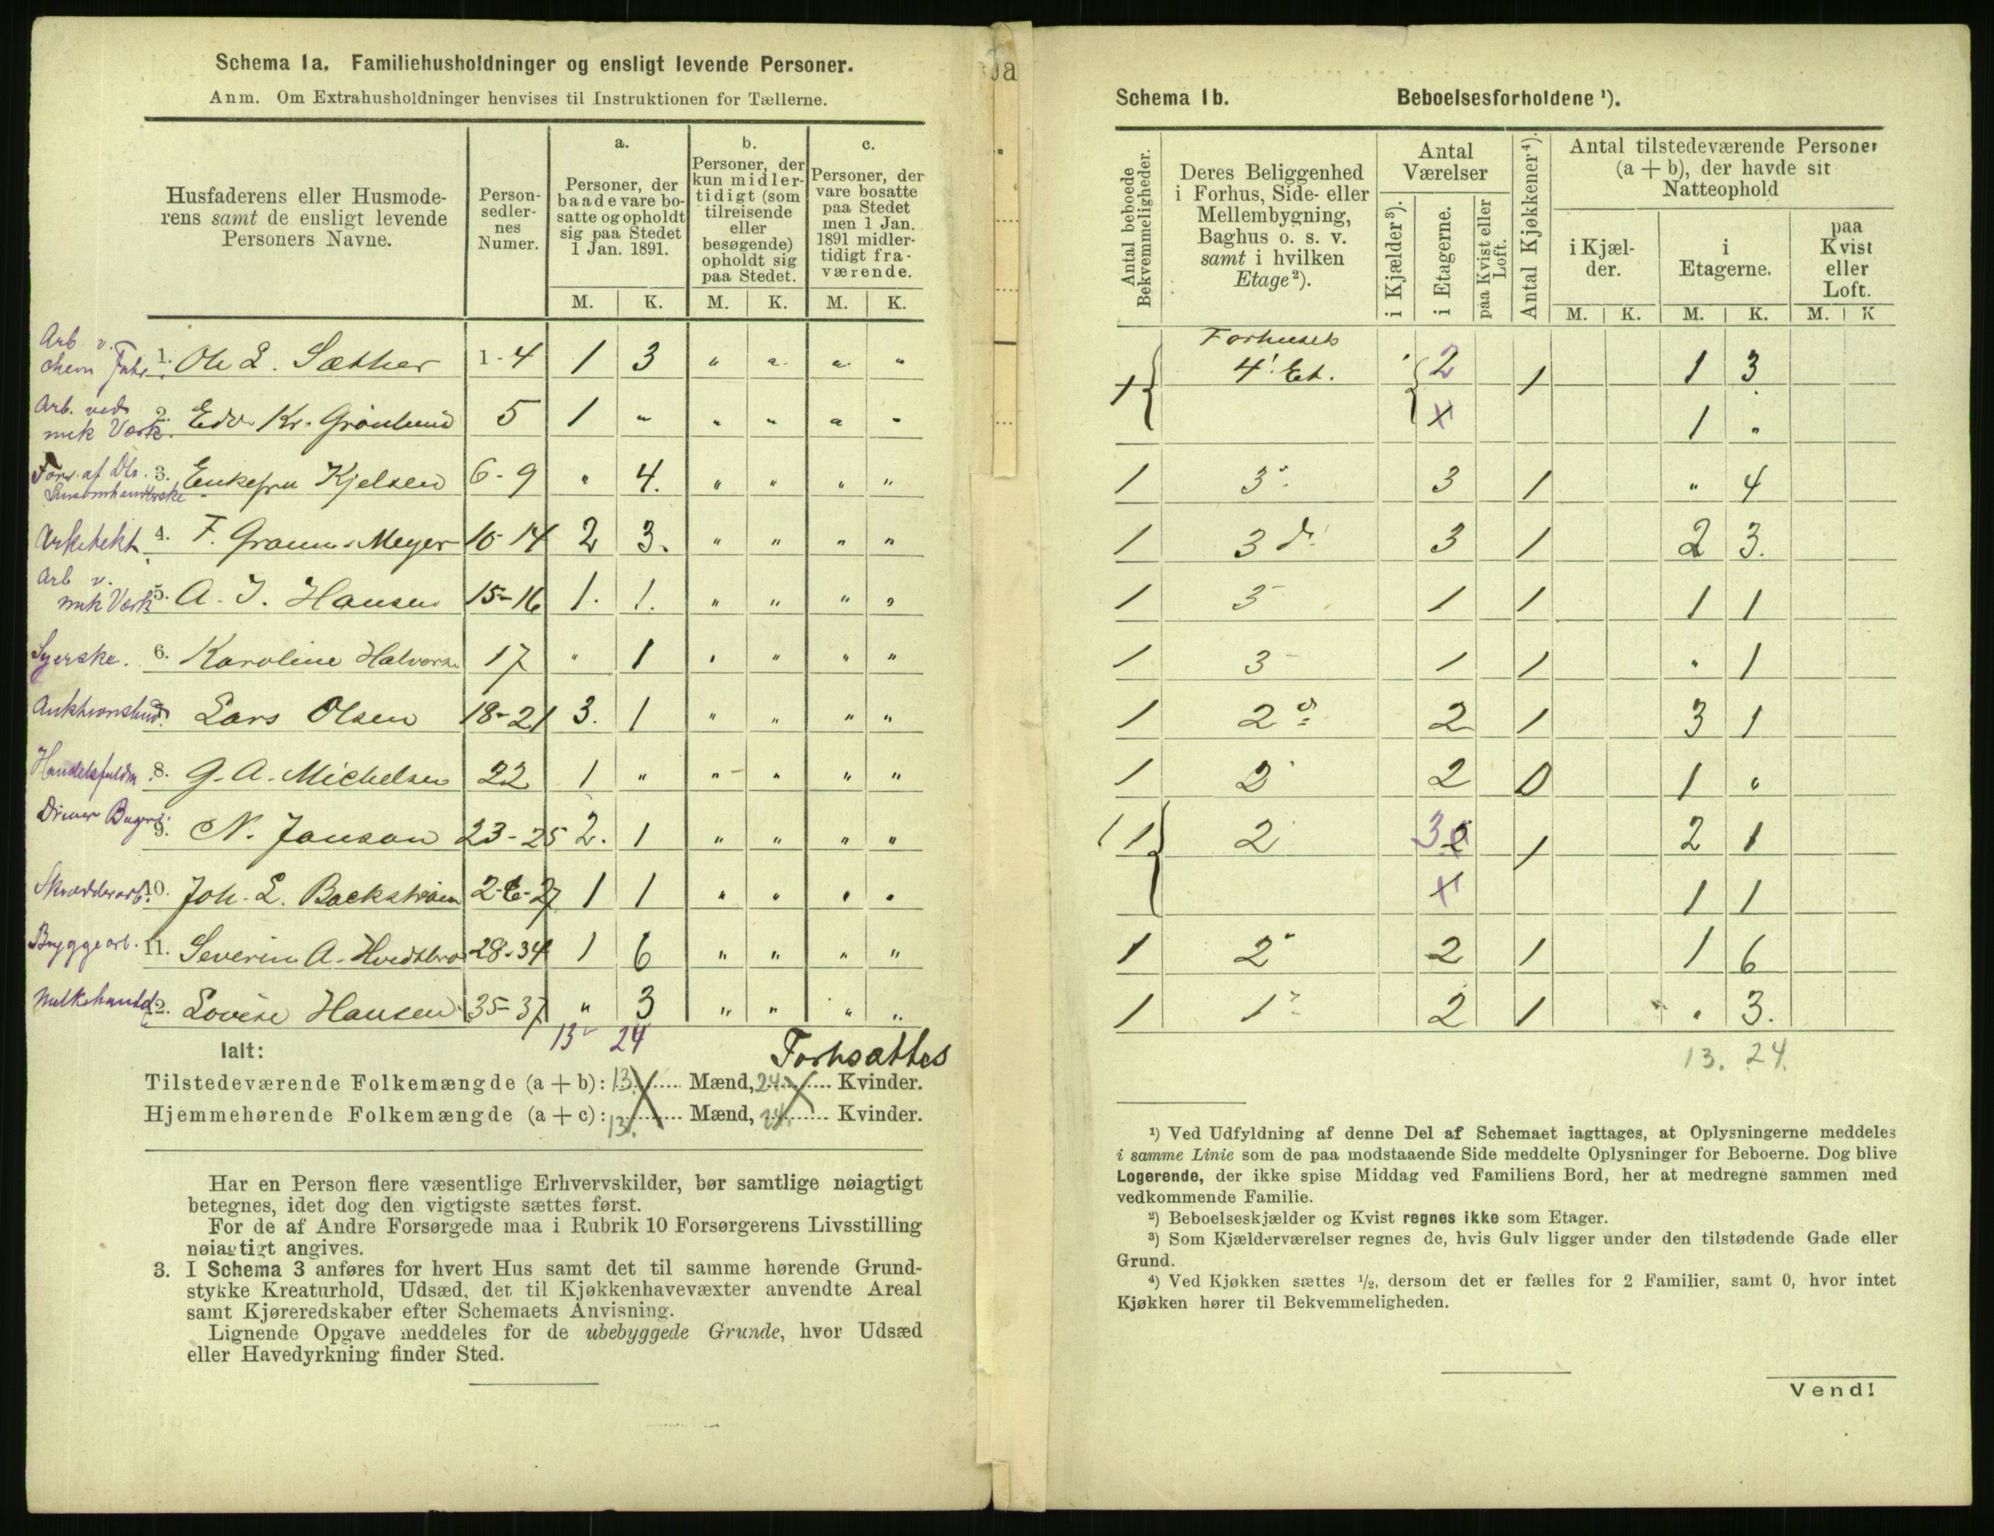 Schema 1a. Familiehusholdninger og ensligt levende Personer.
Anm. Om Extrahusholdninger henvises til Instruktionen for Tællerne.
Husfaderens eller Husmode-
rens samt de ensligt levende
Personers Navne.
Person-
sedler-
nes
Numer.
a.
Personer, der
baade vare bo-
satte og opholdt
sig paa Stedet
1 Jan. 1891.
b.
Personer, der
kun midler-
tidigt (som
tilreisende
eller
besøgende)
opholdt sig
paa Stedet.
c.
Personer, der
vare bosatte
paa Stedet
men 1 Jan.
1891 midler-
tidigt fra-
værende.
M. K. M. K. M. K.
Arb v.
chem Fabr 1. Ole L. Sæther 1-4 1 3 " " " "
Arb. ved
mek Værk. 2. Edv Kr. Grønlund 5 1 " " " " "
Fors. af Dtr.
3. Enkefru Kjelsen 6-9 " 4. " " " "
Arkitekt 4. F. Meyer 10-14 2 3. " " " "
Arb v.
mek Værk 5. A. J. Hansen 15-16 1. 1. " " " "
Syerske. 6. Karoline Halvorsen 17 " 1 " " " "
7. Lars Olsen 18-21 3. 1 " " " "
Handelsfuldm. 8. G. A. Michelsen 22 1 " " " " "
Driver Bageri 9. N. Janson 23-25 2. 1 " " " "
Skrædderarb. 10. Joh. L. Backstrøm 26-27 1 1 " " " "
Byggearb. 11. Severin A. Hvidsbro 28-34 1 6 " " " "
Melkehandl 12. Lovise Hansen 35-37 " 3 " " " "
13 24
Ialt:
Fortsættes
Tilstedeværende Folkemængde (a + b): 13. Mænd, 24. Kvinder.
Hjemmehørende Folkemængde (a + c): 13. Mænd, 24. Kvinder.
Har en Person flere væsentlige Erhvervskilder, bør samtlige nøiagtigt
betegnes, idet dog den vigtigste sættes først.
For de af Andre Forsørgede maa i Rubrik 10 Forsørgerens Livsstilling
nøiagtigt angives.
3. I Schema 3 anføres for hvert Hus samt det til samme hørende Grund-
stykke Kreaturhold, Udsæd, det til Kjøkkenhavevæxter anvendte Areal
samt Kjøreredskaber efter Schemaets Anvisning.
Lignende Opgave meddeles for de ubebyggede Grunde, hvor Udsæd
eller Havedyrkning finder Sted.
Schema 1b. Beboelsesforholdene ¹).
Antal beboede
Bekvemmeligheder.
Deres Beliggenhed
i Forhus, Side- eller
Mellembygning,
Baghus o. s. v.
samt i hvilken
Etage ²).
Antal
Værelser
i Kjælder ³).
i Etagerne.
paa Kvist eller
Loft.
Antal Kjøkkener ⁴).
Antal tilstedeværende Personer
(a + b), der havde sit
Natteophold
i Kjæl-
der.
i
Etagerne.
paa
Kvist
eller
Loft.
M. K. M. K. M. K
Forhusets
1 4' Et. 2 1 1 3
x 1 "
1 3 3 1 " 4
1 3 d. 3 1 2 3.
1 3 1 1 1 1
1 3 1 1 " 1
1 2 2 1 3 1
1 2 2 0 1 "
1 2 3 1 2 1
x 1 1
1 2 2 1 1 6
1 1 2 1 " 3.
13. 24.
¹) Ved Udfyldning af denne Del af Schemaet iagttages, at Oplysningerne meddeles
i samme Linie som de paa modstaaende Side meddelte Oplysninger for Beboerne. Dog blive
Logerende, der ikke spise Middag ved Familiens Bord, her at medregne sammen med
vedkommende Familie.
²) Beboelseskjælder og Kvist regnes ikke som Etager.
³) Som Kjælderværelser regnes de, hvis Gulv ligger under den tilstødende Gade eller
Grund.
⁴) Ved Kjøkken sættes ½, dersom det er fælles for 2 Familier, samt 0, hvor intet
Kjøkken hører til Bekvemmeligheden.
Vend!